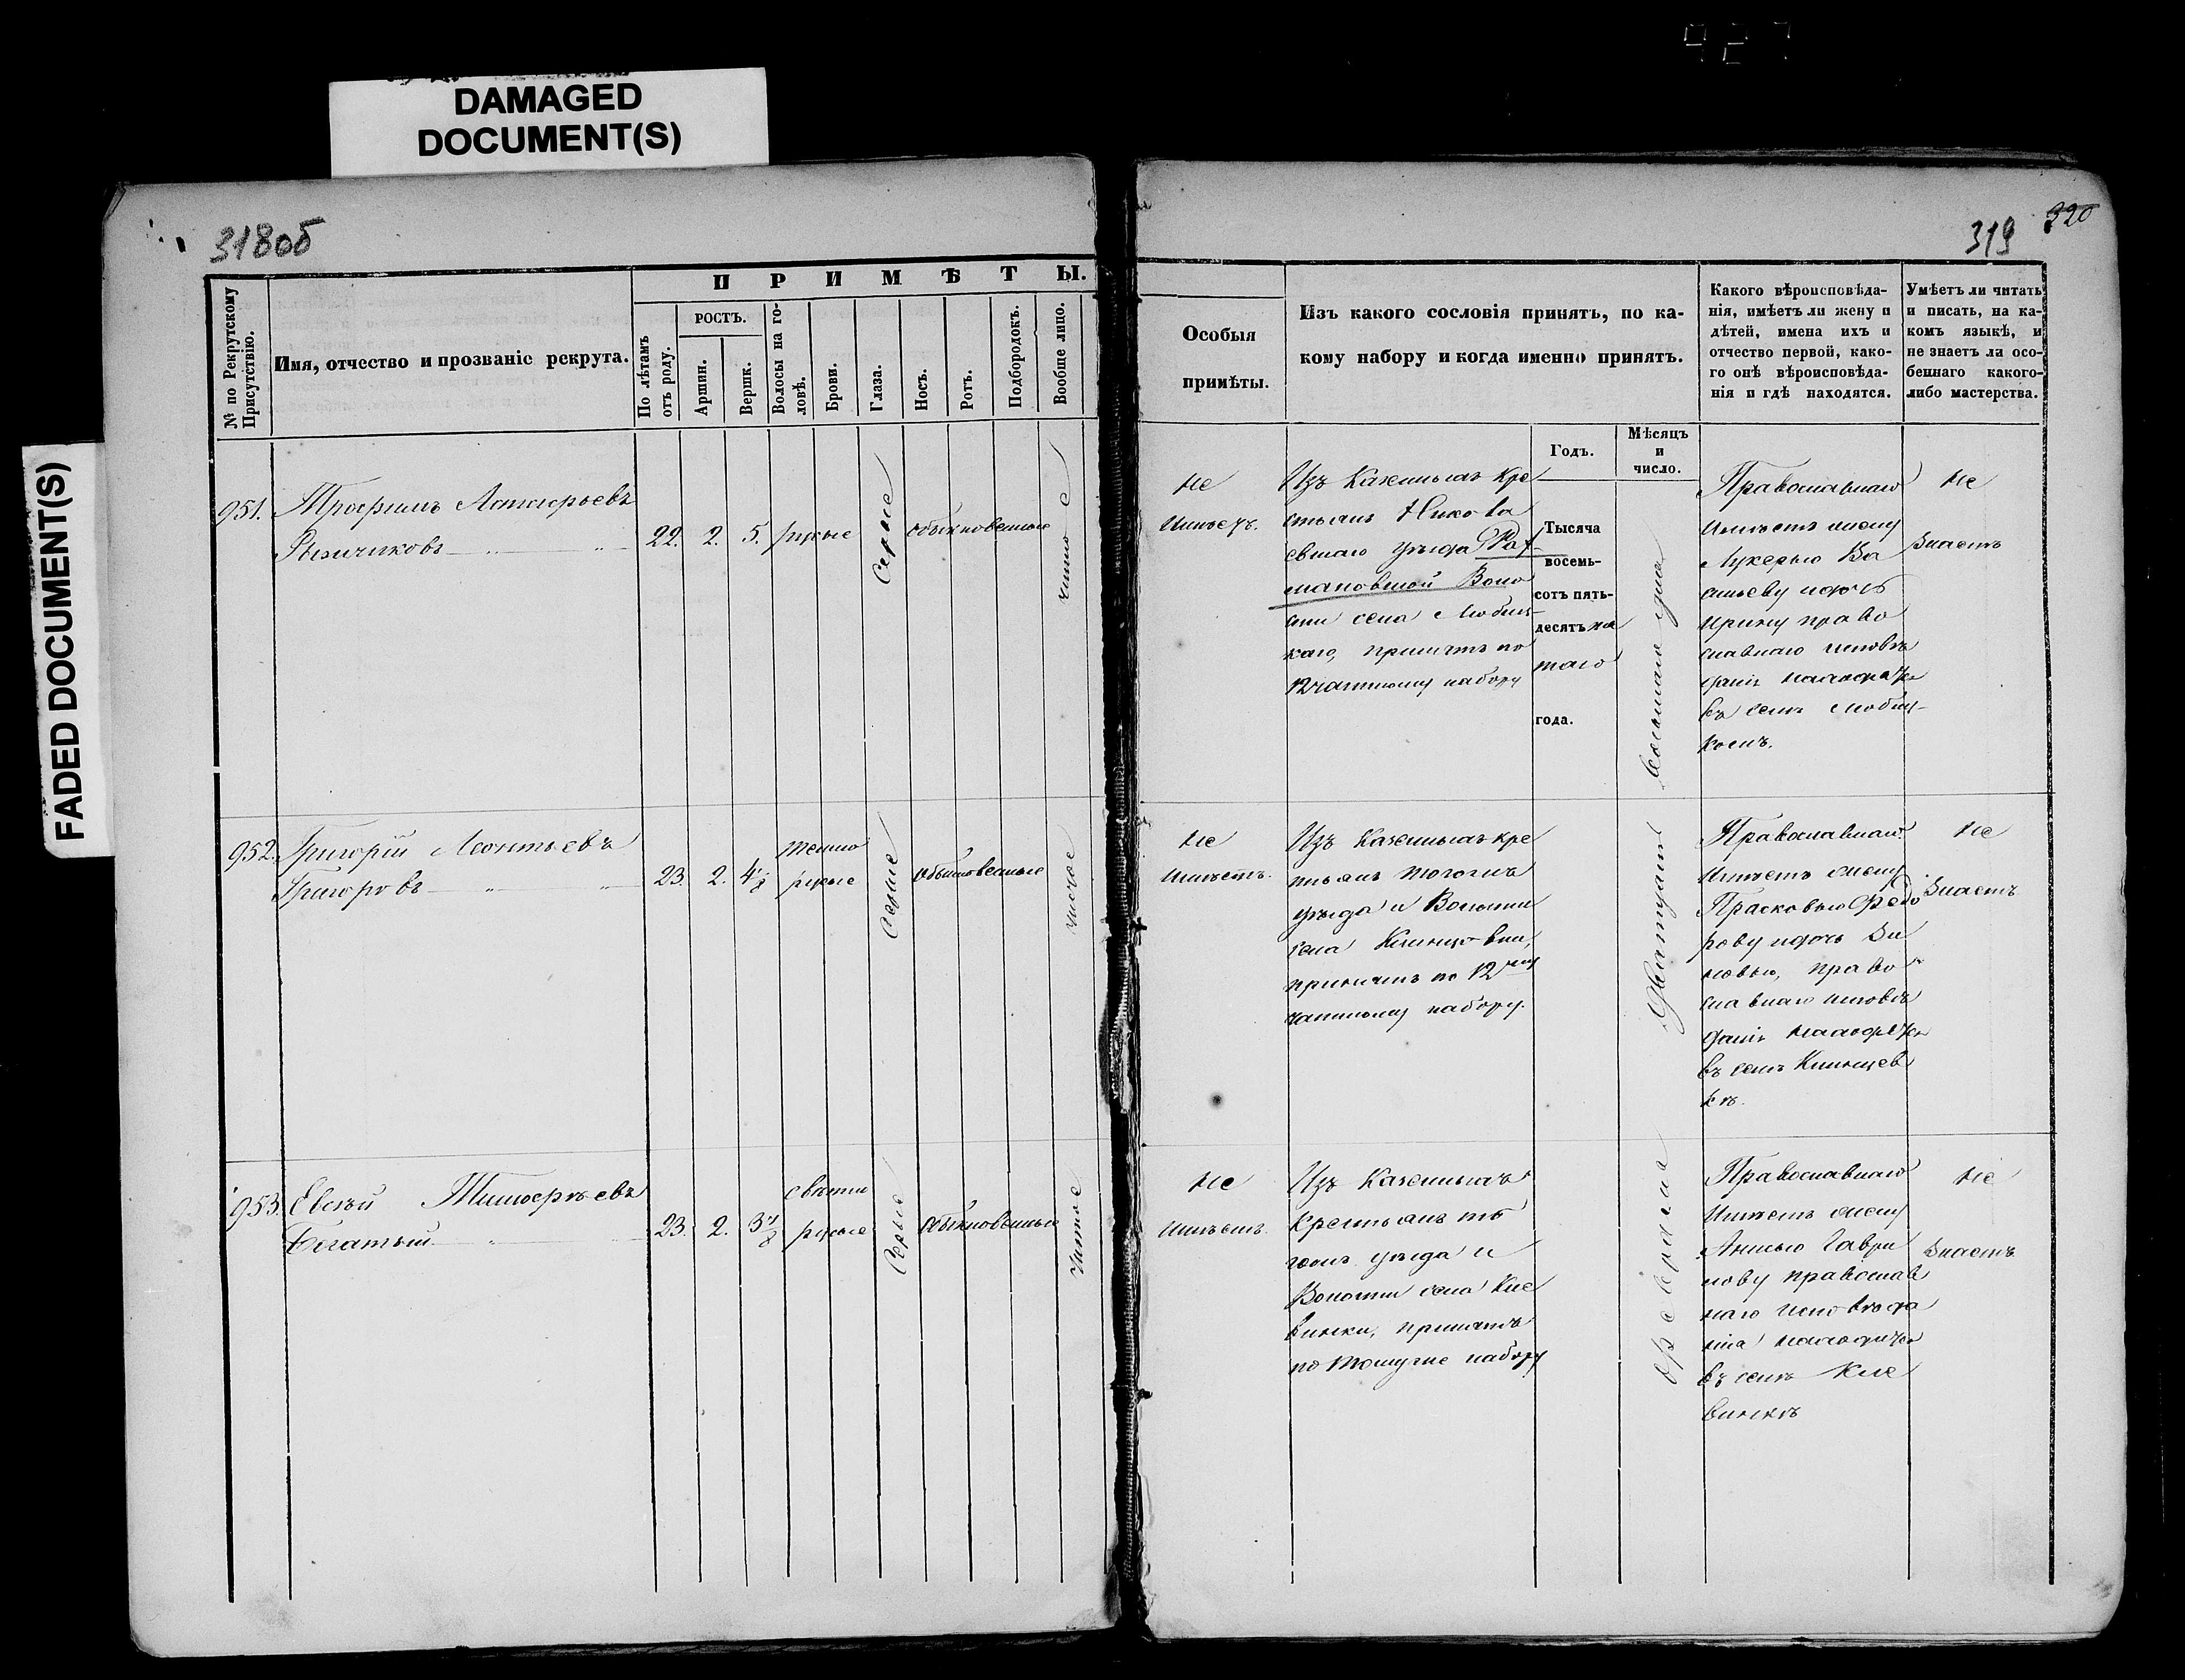 427
DAMAGED
DOCUMENT(S)
FADED DOCUMENT(S)
318об
№ по Рекрутскому Присутствію.
Имя, отчество и прозваніе рекрута.
ПРИМѢТЫ.
По лѣтамъ отъ роду.
РОСТЪ.
Аршин.
Вершк.
Волосы на головѣ.
Брови.
Глаза.
Носъ.
Ротъ.
Подбородокъ.
Вообще лицо.
951.
Трофимъ
Рыжиковъ
22. 2. 5. русые
Серые
обыкновенные
чистое
952.
Григорій Леонтьевъ
Григоровъ
23. 2. 4 1/8
темно
русые
Серые
обыкновенные
чистое
953.
Евсѣй Тимофѣевъ
Богатый
23. 2. 3 7/8
свѣтло
русые
Серые
обыкновенные
Чистое
319 320
Особыя
примѣты.
Изъ какого сословія принятъ, по ка-
кому набору и когда именно принятъ.
Какого вѣроисповѣда-
нія, имѣетъ ли жену и
дѣтей, имена ихъ и
отчество первой, како-
го онѣ вѣроисповѣда-
нія и гдѣ находятся.
Умѣетъ ли читать
и писать, на ка-
комъ языкѣ, и
не знаетъ ли осо-
беннаго какого-
либо мастерства.
Годъ.
Мѣсяцъ
и
число.
Не
Имѣетъ.
Изъ Казенныхъ кре
стьянъ Никола
евскаго уѣзда
мановской Воло
сти села Любиц
каго, принятъ по
12 частному набору
Тысяча
восемь-
сотъ пять-
десятъ пя
таго
года.
Двадцать
Февраля
Православнаго
Имѣетъ жену
Лукерью Ва
сильеву и дочь
Ирину право
славнаго исповѣ
данія находятся
въ селѣ Любиц-
комъ.
Не
Знаетъ
Не
Имѣетъ.
Изъ Казенныхъ кре
стьянъ
уѣзда и Волости
села
принятъ по 12
частному набору.
Православнаго.
Имѣетъ жену
Прасковью Федо
рову и дочь Зи
новью, право
славнаго исповѣ
данія находятся
въ селѣ
кѣ.
Не
Знаетъ
Не
Имѣетъ.
Изъ Казенныхъ
Крестьянъ
уѣзда и
Волости села Кле
винки, принятъ
по набору
Православнаго
Имѣетъ жену
Анисью Гаври
лову православ
наго исповѣда
нія находится
въ селѣ Кле
винкѣ
Не
Знаетъ